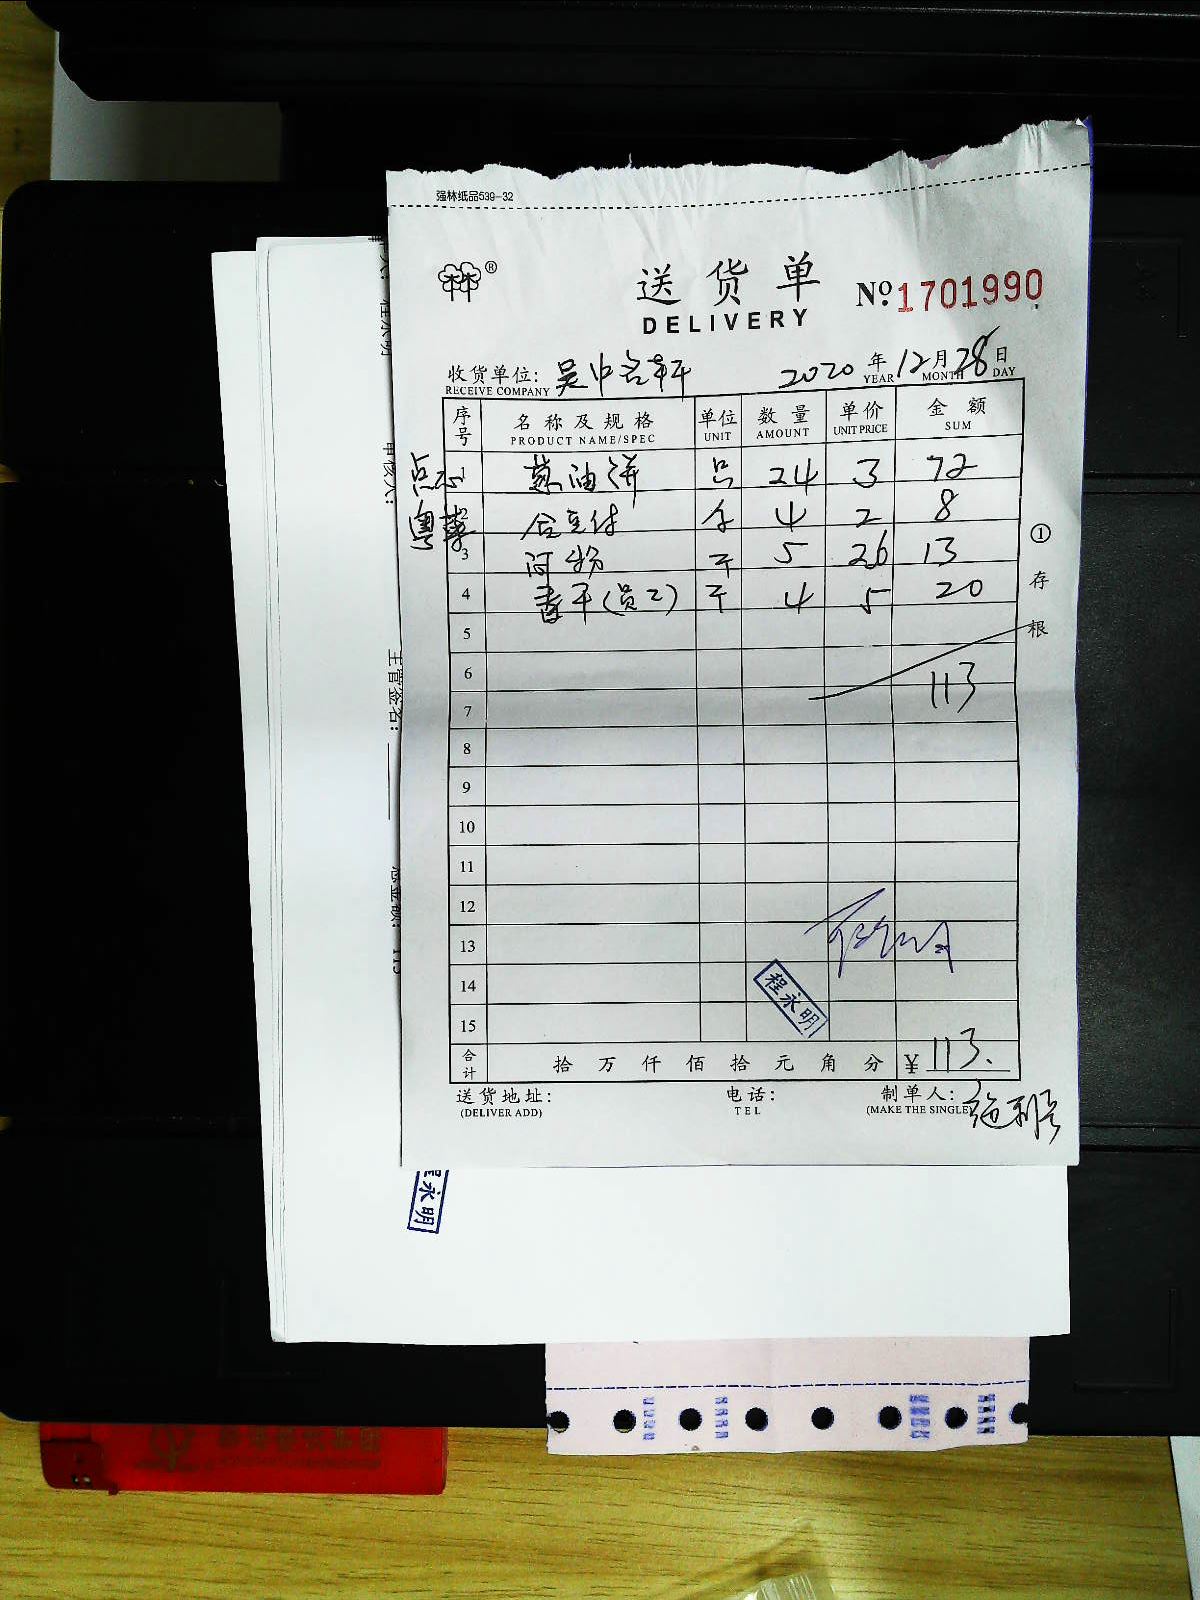 强林纸品539-32
®
送货单
№ 1701990
DELIVERY
收货单位: 吴中名轩 2020 年 12 月 28 日
RECEIVE COMPANY YEAR MONTH DAY
序号 名称及规格 单位 数量 单价 金额
PRODUCT NAME/SPEC UNIT AMOUNT UNIT PRICE SUM
点心 1 葱油饼 只 24 3 72
粤菜 2 24 8
3 5 26 13
4 香干(员工) 斤 4 5 20
5
6
113
7
8
9
10
11
12
13
14
15
程永明
合计 拾 万 仟 佰 拾 元 角 分 ¥ 113.
送货地址: 电话: 制单人:
(DELIVER ADD) TEL (MAKE THE SINGLE)
①存根
主管签名:
总金额: 113
程永明